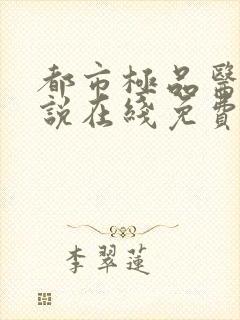 都市極品醫
說在綫免費
李翠蓮